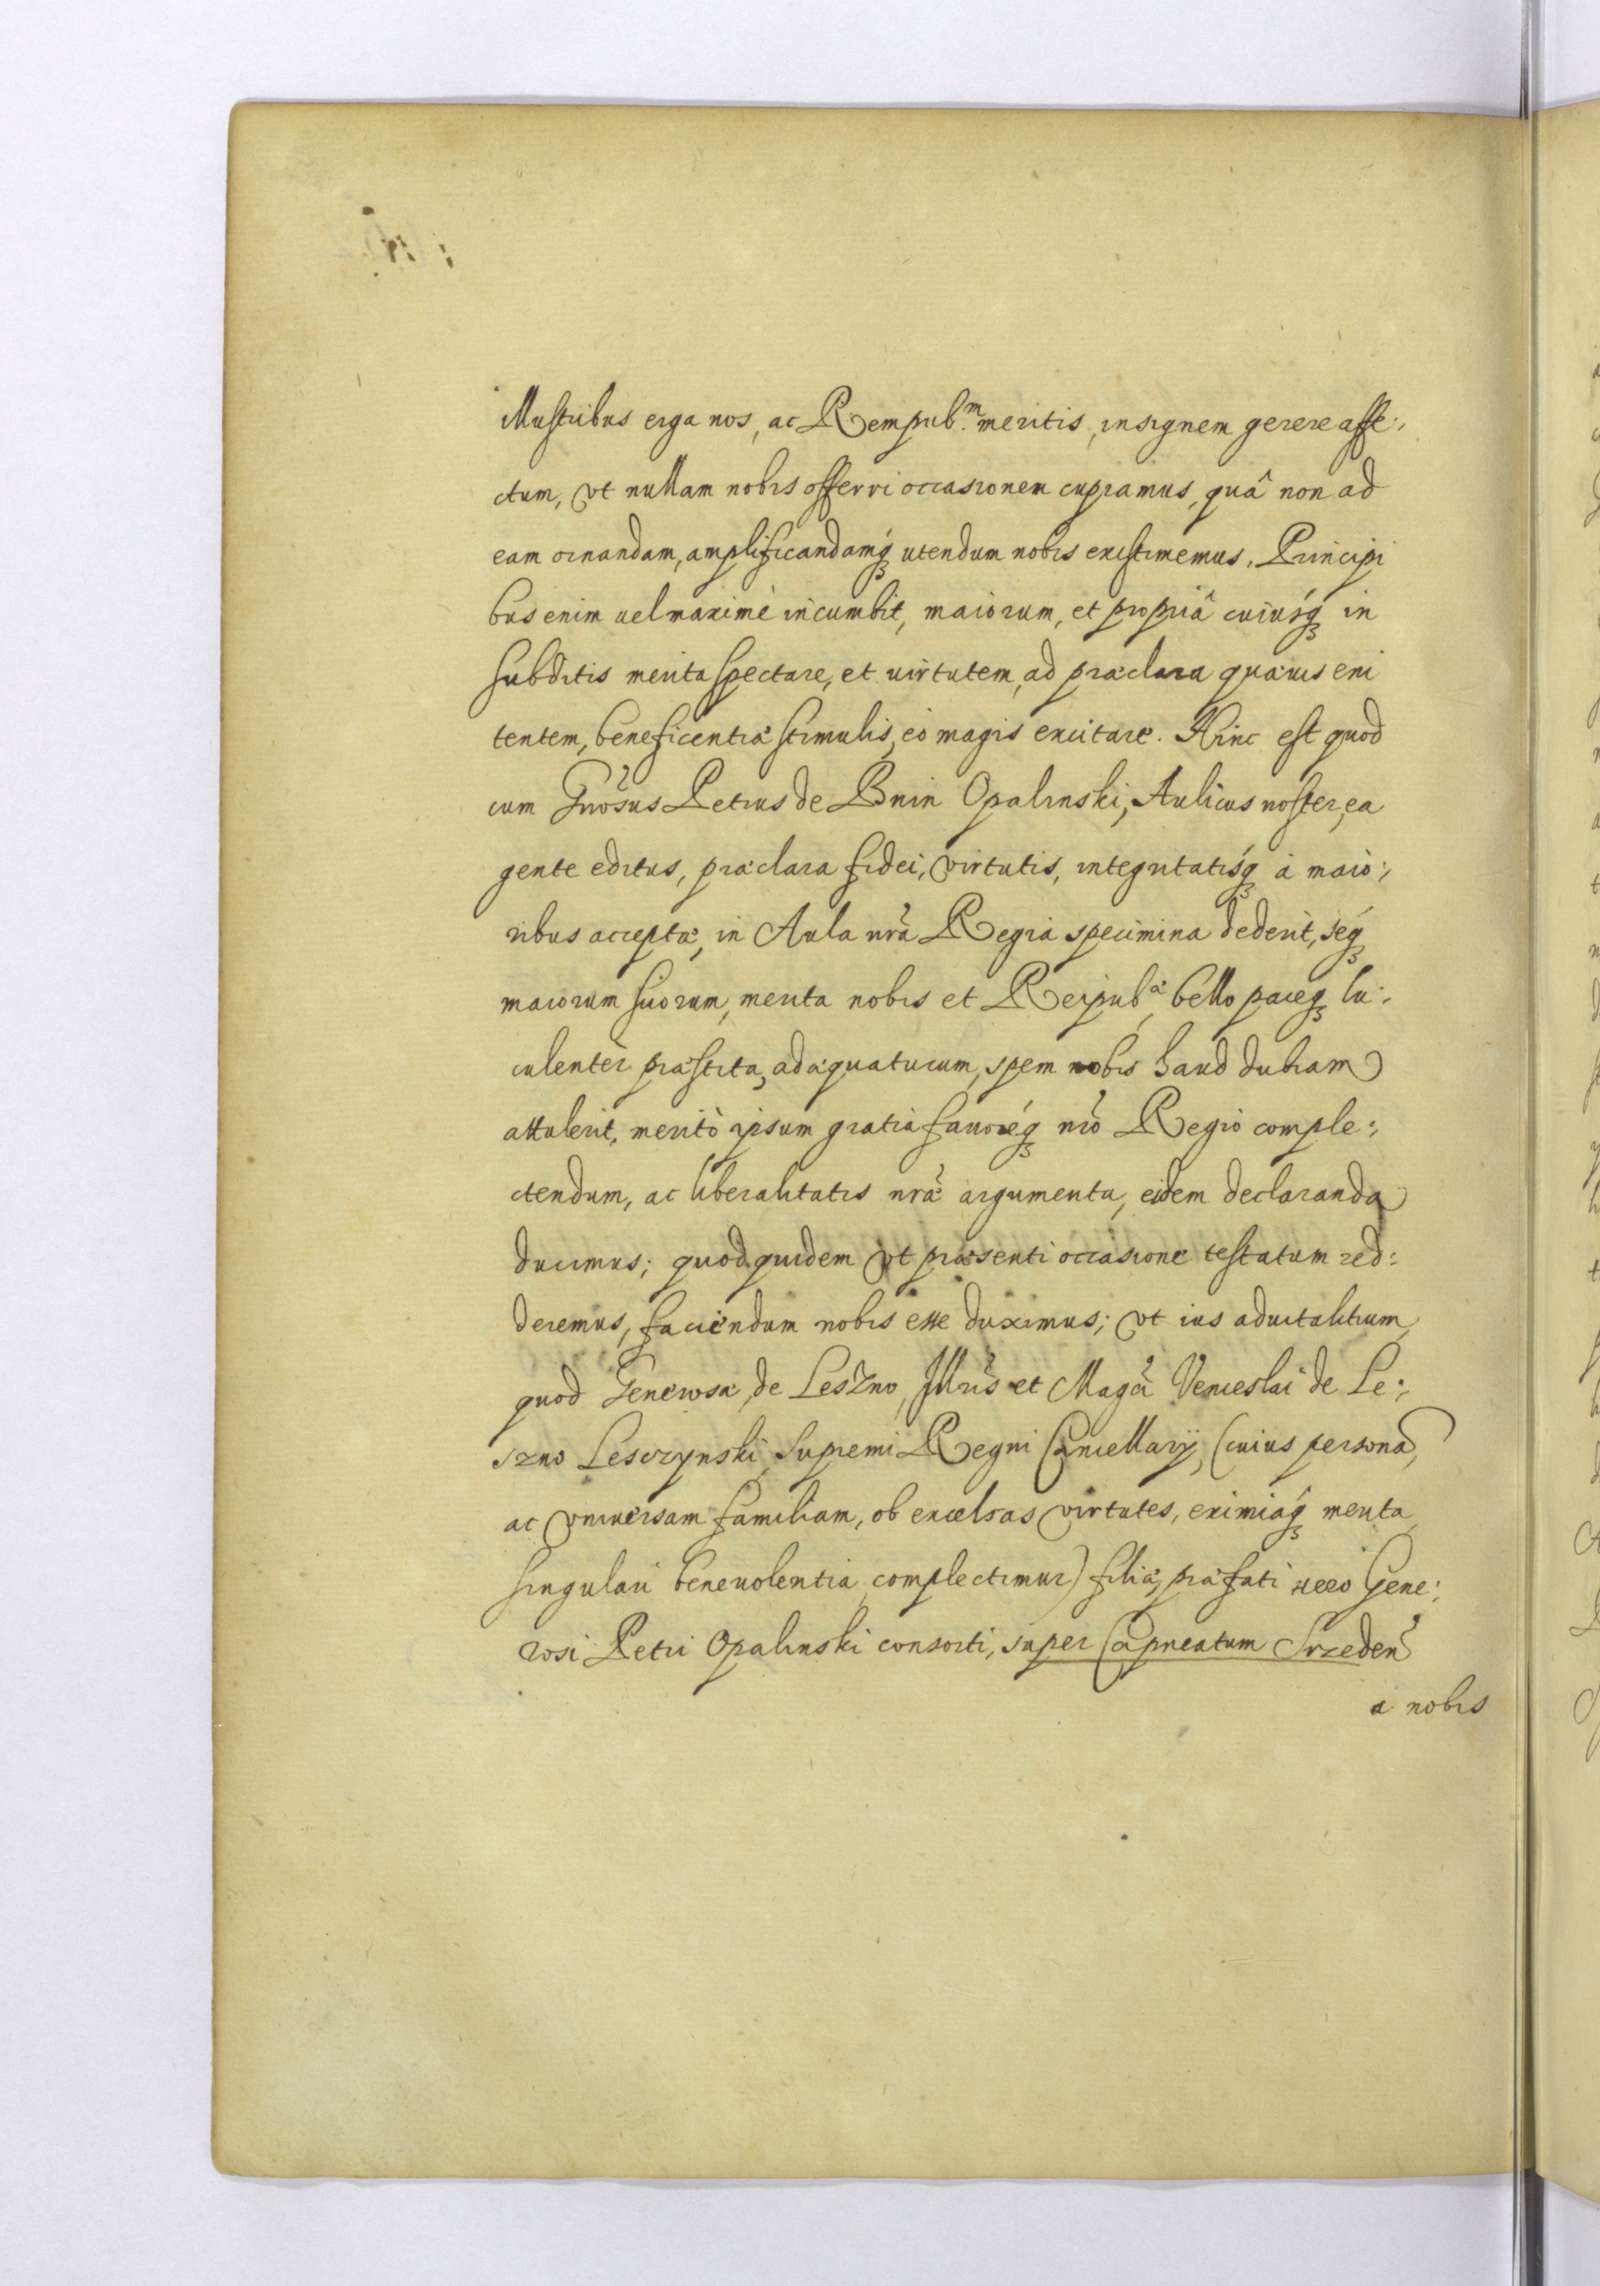 illustribus erga nos, ac Rempub.m meritis, insignem gerere affe:,
ctum, vt nullam nobis offerri occasionem cupiamus, quâ non ad
eam ornandam, amplificandamq́ꝫ utendum nobis existimemus. Principi
bus enim uel maximè incumbit, maiorum, et propriâ cuiusq́ꝫ in
subditis merita spectare, et uirtutem, ad præclara quæuis eni
tentem, beneficentiæ stimulis, eò magis excitare. Hinc est quod
cum Gnõsus Petrus de Bnin Opalinski, Aulicus noster, ea
gente editus, præclara fidei, virtutis, integritatisq́ꝫ à maio:,
ribus acceptæ, in Aula nrã Regia specimina dederit, seq́ꝫ
maiorum suorum, merita nobis et Reipub.æ bello paceqꝫ lu:,
culenter præstita, adæquaturum, spem nobis haud dubiam
attulerit, meritò ipsum gratia fauoreq́ꝫ nrõ Regio comple:,
ctendum, ac liberalitatis nræ̃ argumenta, eidem declaranda
ducimus; quod quidem vt præsenti occasione testatum red:
deremus, faciendum nobis esse duximus; vt ius aduitalitium,
quod Generosæ de Leszno, Illrĩs et Magcĩ Venceslai de Le:,
szno Lesczynski, Supremi Regni Cancellarij, (cuius personã,
ac vniuersam familiam, ob excelsas virtutes, eximiaq́ꝫ merita,
singulari beneuolentia complectimur) filiæ, præfati uero Gene:
rosi Petri Opalinski consorti, super Capneatum Srzedeñ
a nobis